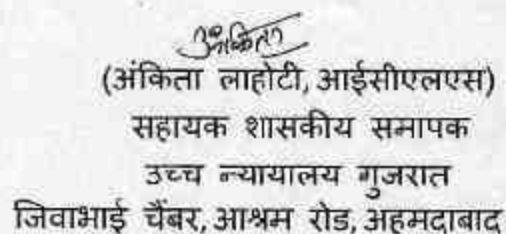 अंकिता
(अंकिता लाहोटी, आईसीएलएस)
सहायक शासकीय समापक
उच्च न्यायालय गुजरात
जिवाभाई चैंबर, आश्रम रोड, अहमदाबाद